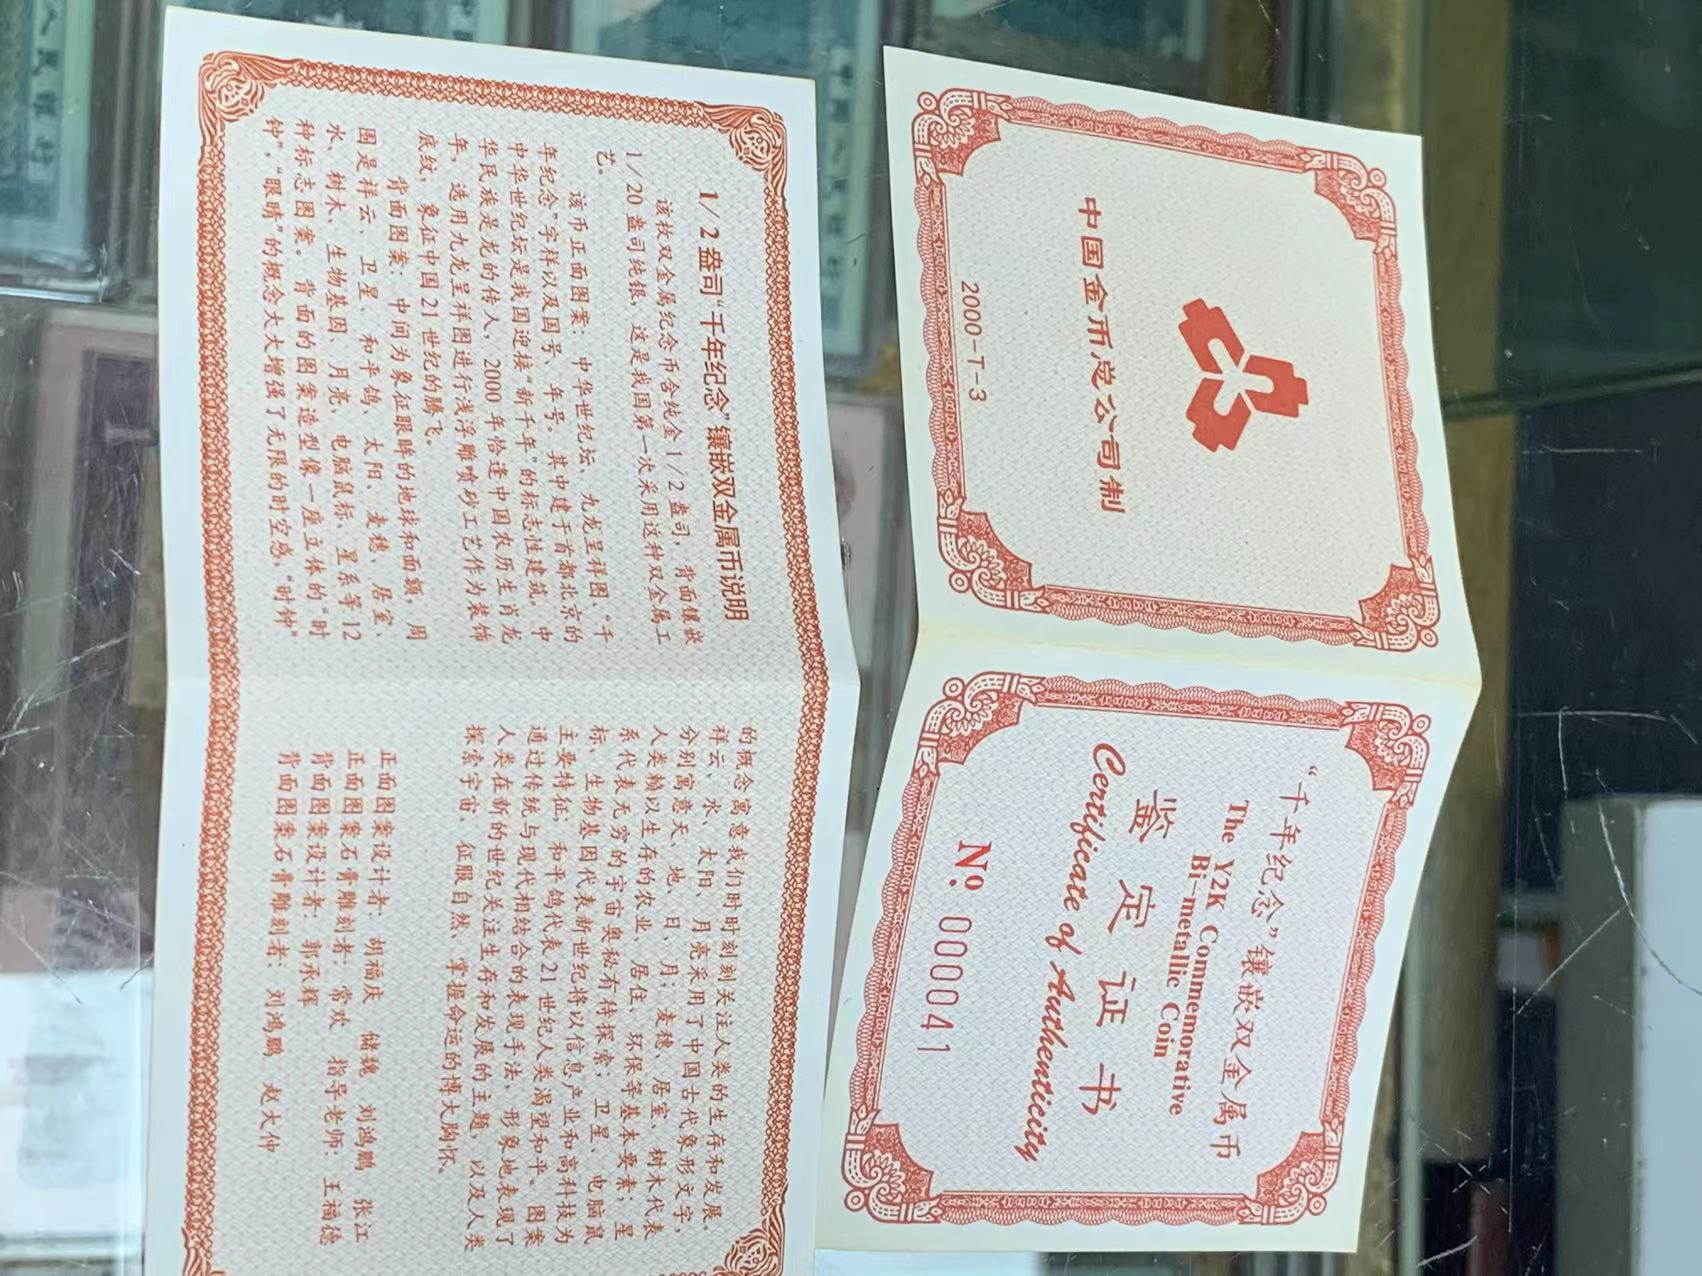 中国金币总公司制
2000-T-3
“千年纪念”镶嵌双金属币
The Y2K Commemorative
Bi-metallic Coin
鉴定证书
Certificate of Authenticity
No. 0000041
1/2盎司“千年纪念”镶嵌双金属币说明
该枚双金属纪念币含纯金1/2盎司，背面镶嵌
1/20盎司纯银，这是我国第一次采用这种双金属工
艺。
该币正面图案：中华世纪坛、九龙呈祥图、“千
年纪念”字样以及国号、年号。其中建于首都北京的
中华世纪坛是我国迎接“新千年”的标志性建筑。中
华民族是龙的传人，2000年恰逢中国农历生肖龙
年，选用九龙呈祥图进行浅浮雕喷砂工艺作为装饰
底纹，象征中国21世纪的腾飞。
背面图案：中间为象征眼眸的地球和面额，周
围是祥云、卫星、和平鸽、太阳、麦穗、居室、
水、树木、生物基因、月亮、电脑鼠标、星系等12
种标志图案。背面的图案造型像一座立体的“时
钟”，“眼睛”的概念大大增强了无限的时空感，“时钟”
的概念寓意我们时时刻刻关注人类的生存和发展。
祥云、水、太阳、月亮采用了中国古代象形文字，
分别寓意天、地、日、月；麦穗、居室、树木代表
人类赖以生存的农业、居住、环保等基本要素；星
系代表无穷的宇宙奥秘有待探索，卫星、电脑鼠
标、生物基因代表新世纪将以信息产业和高科技为
主要特征；和平鸽代表21世纪人类渴望和平。图案
通过传统与现代相结合的表现手法，形象地表现了
人类在新的世纪关注生存和发展的主题，以及人类
探索宇宙、征服自然、掌握命运的博大胸怀。
正面图案设计者：胡福庆 储魏 刘鸿鹏 张江
正面图案石膏雕刻者：常欢 指导老师：王福德
背面图案设计者：郭承辉
背面图案石膏雕刻者：刘鸿鹏 赵大仲